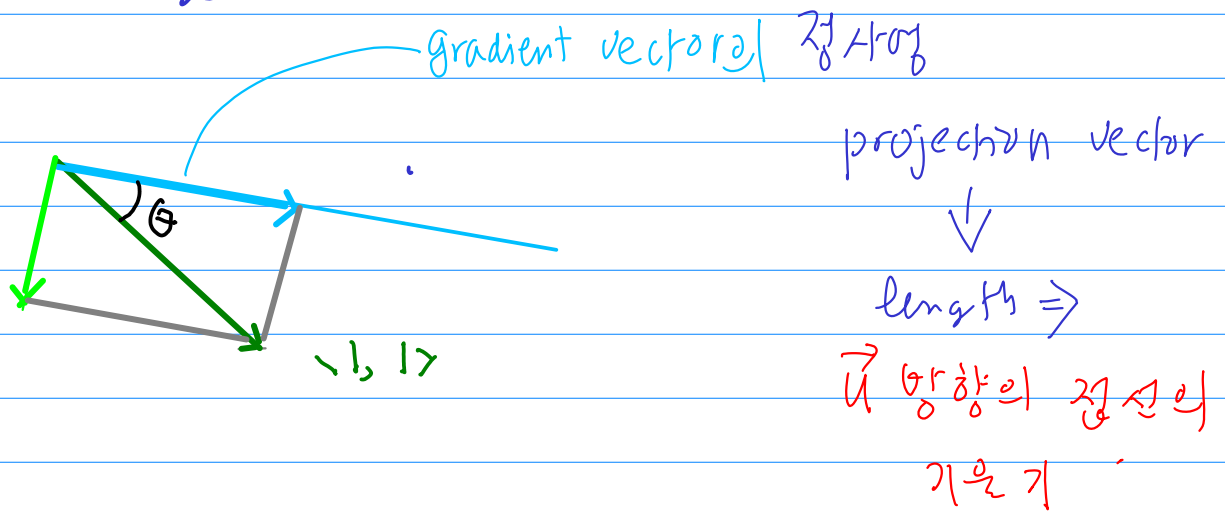 gradient vector의 정사영
projection vector
↓
θ
length ⇒
<1, 1>
u⃗ 방향의 접선의
기울기